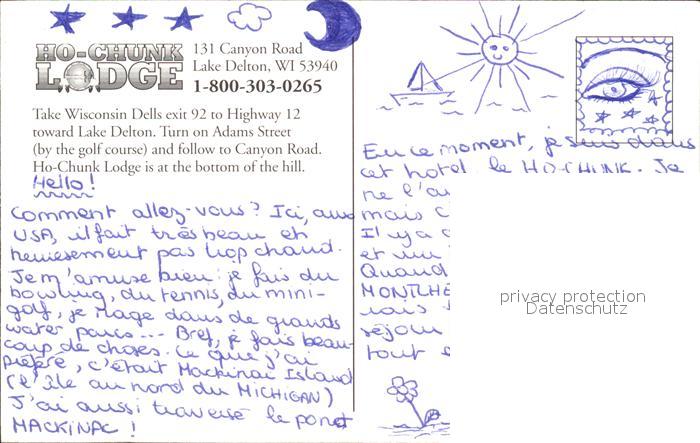 HO-CHUNK
LODGE
131 Canyon Road
Lake Delton, WI 53940
1-800-303-0265
Take Wisconsin Dells exit 92 to Highway 12
toward Lake Delton. Turn on Adams Street
(by the golf course) and follow to Canyon Road.
Ho-Chunk Lodge is at the bottom of the hill.
Hello!
Comment allez-vous? Ici, aux
USA, il fait très beau et
heureusement pas trop chaud.
Je m'amuse bien: je fais du
bowling, du tennis, du mini-
golf, je nage dans de grands
water parcs... Bref, je fais beau-
coup de choses. Ce que j'ai
préféré, c'était Mackinac Island
(l'île au nord du MICHIGAN)
J'ai aussi traversé le pont
MACKINAC!
En ce moment, je suis dans
cet hotel le HO-CHUNK. Je
ne l'
mais c
Il y a
et un
Quand
MONTLHE
séjour
tout
privacy protection
Datenschutz